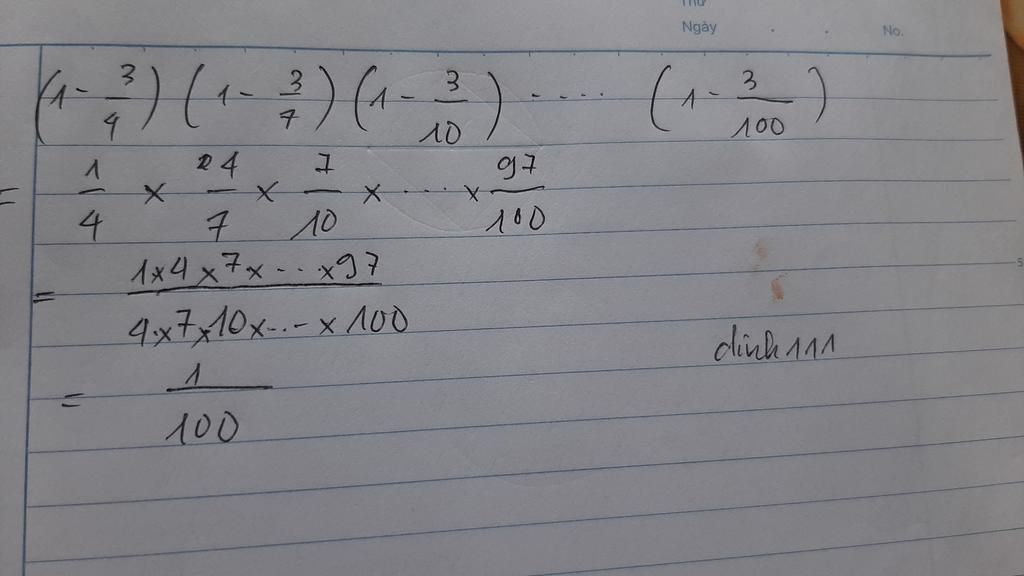 Thứ
Ngày . . No.
(1 - 3/4) (1 - 3/7) (1 - 3/10) ..... (1 - 3/100)
= 1/4 × 4/7 × 7/10 × ..... × 97/100
= 1×4×7×...×97 / 4×7×10×...×100
dinh111
= 1/100